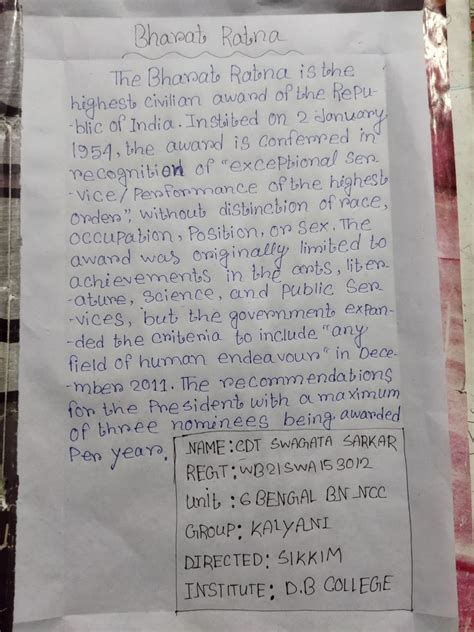 Bharat Ratna
The Bharat Ratna is the
highest civilian award of the Repu-
-blic of India. Instited on 2 January
1954, the award is conferred in
recognition of "exceptional ser
-vice/Performance of the highest
order", without distinction of race,
occupation, Position, or sex. The
award was originally limited to
achievements in the arts, liter-
-ature, science, and public ser
-vices, but the government expan-
-ded the criteria to include "any
field of human endeavour" in Dece-
-mber 2011. The recommendations
for the President with a maximum
of three nominees being awarded
Per year.
NAME: CDT SWAGATA SARKAR
REGT: WB21SWA153012
Unit: 6 BENGAL BN NCC
GROUP: KALYANI
DIRECTED: SIKKIM
INSTITUTE: D.B COLLEGE